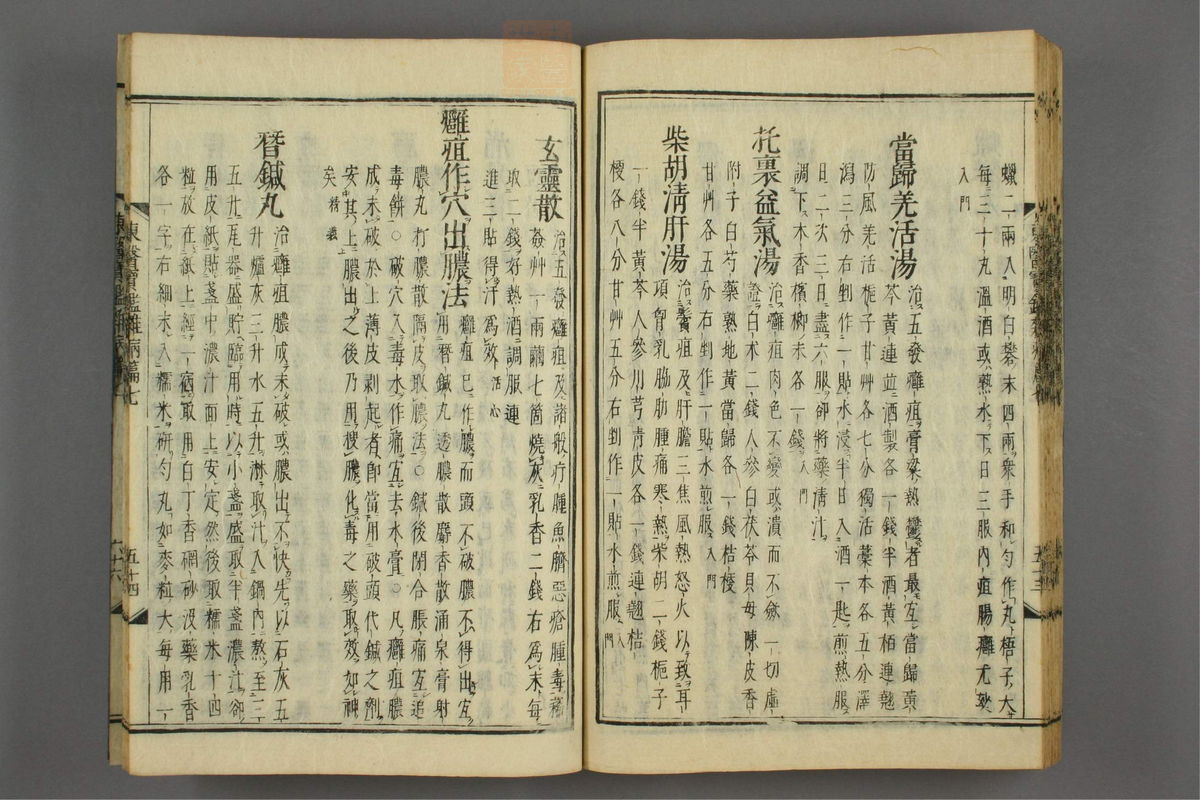 蠟二兩入明白礬末四兩衆手和勻作丸梧子大
每三十丸溫酒或熱水下日三服內疽腸癰尤效
入門
當歸羌活湯 治五發癰疽膏粱熱鬱者最宜當歸黃
芩黃連並酒製各一錢半酒黃栢連翹
防風羌活梔子甘艸各七分獨活藁本各五分澤
瀉三分右剉作一貼水浸半日入酒一匙煎熱服
日二次二日盡六服卻將藥淸汁
調下木香檳榔末各一錢入門
托裏益氣湯 治癰疽肉色不變或潰而不斂一切虛
證白朮二錢人參白茯苓貝母陳皮香
附子白芍藥熟地黃當歸各一錢桔梗
甘艸各五分右剉作一貼水煎服入門
柴胡淸肝湯 治鬢疽及肝膽三焦風熱怒火以致耳
項胷乳脇肋腫痛寒熱柴胡二錢梔子
一錢半黃芩人參川芎靑皮各一錢連翹桔
梗各八分甘艸五分右剉作一貼水煎服入門
五十三
玄靈散 治五發癰疽及諸般疔腫魚臍惡瘡腫毒豨
薟艸一兩繭七箇燒灰乳香二錢右爲末每
取二錢好熱酒調服連
進三貼得汗爲效活心
癰疽作穴出膿法 癰疽已作膿而頭不破膿不得出宜
用替鍼丸透膿散麝香散涌泉膏射
膿丸打膿散隔皮取膿法○鍼後閉合脹痛宜追
毒餠○破穴入毒水作痛宜去水膏○凡癰疽膿
成未破於上薄皮剝起者卽當用破頭代鍼之劑
安其上膿出之後乃用搜膿化毒之藥取效如神
矣精義
替鍼丸 治癰疽膿成未破或膿出不快先以石灰五
升爐灰三升水五升淋取汁入鍋內熬至三
五升瓦器盛貯臨用時以小盞盛取半盞濃汁卻
用皮紙貼盞中濃汁面上安定然後取糯米十四
粒放在紙上經一宿取用白丁香碙砂沒藥乳香
各一字右細末入糯米硏勻丸如麥粒大每用一
東醫寶鑑雜病篇七
五十四